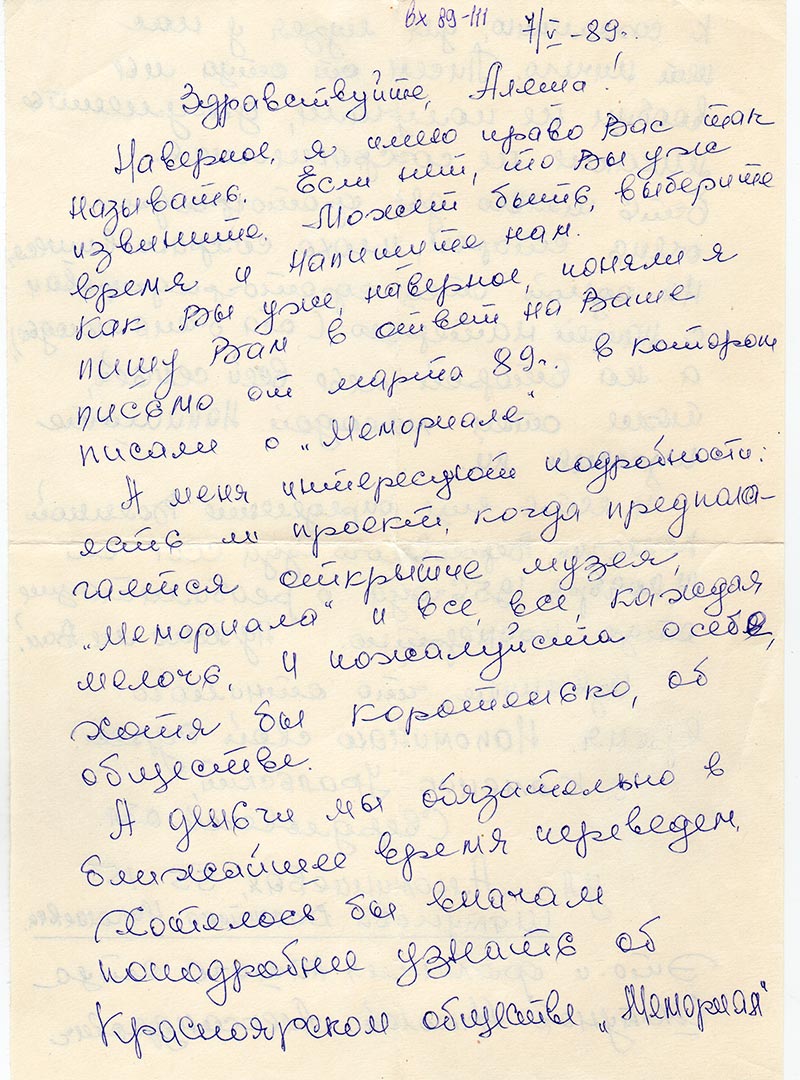 вх 89-111
7/V-89г.
Здравствуйте, Алеша!
Наверное, я имею право Вас так
называть. Если нет, то Вы уж
извините. Может быть, выберите
время и напишите нам.
Как Вы уже, наверное, поняли я
пишу Вам в ответ на Ваше
письмо от марта 89г. в котором
писали о „Мемориале"
А меня интересуют подробности:
есть ли проект, когда предпола-
гается открытие музея,
„Мемориала" и все, все, каждая
мелочь. И пожалуйста особо,
хотя бы коротенько, об
обществе.
А деньги мы обязательно в
ближайшее время переведем.
Хотелось бы вначале
поподробнее узнать об
Красноярском обществе „Мемориал"